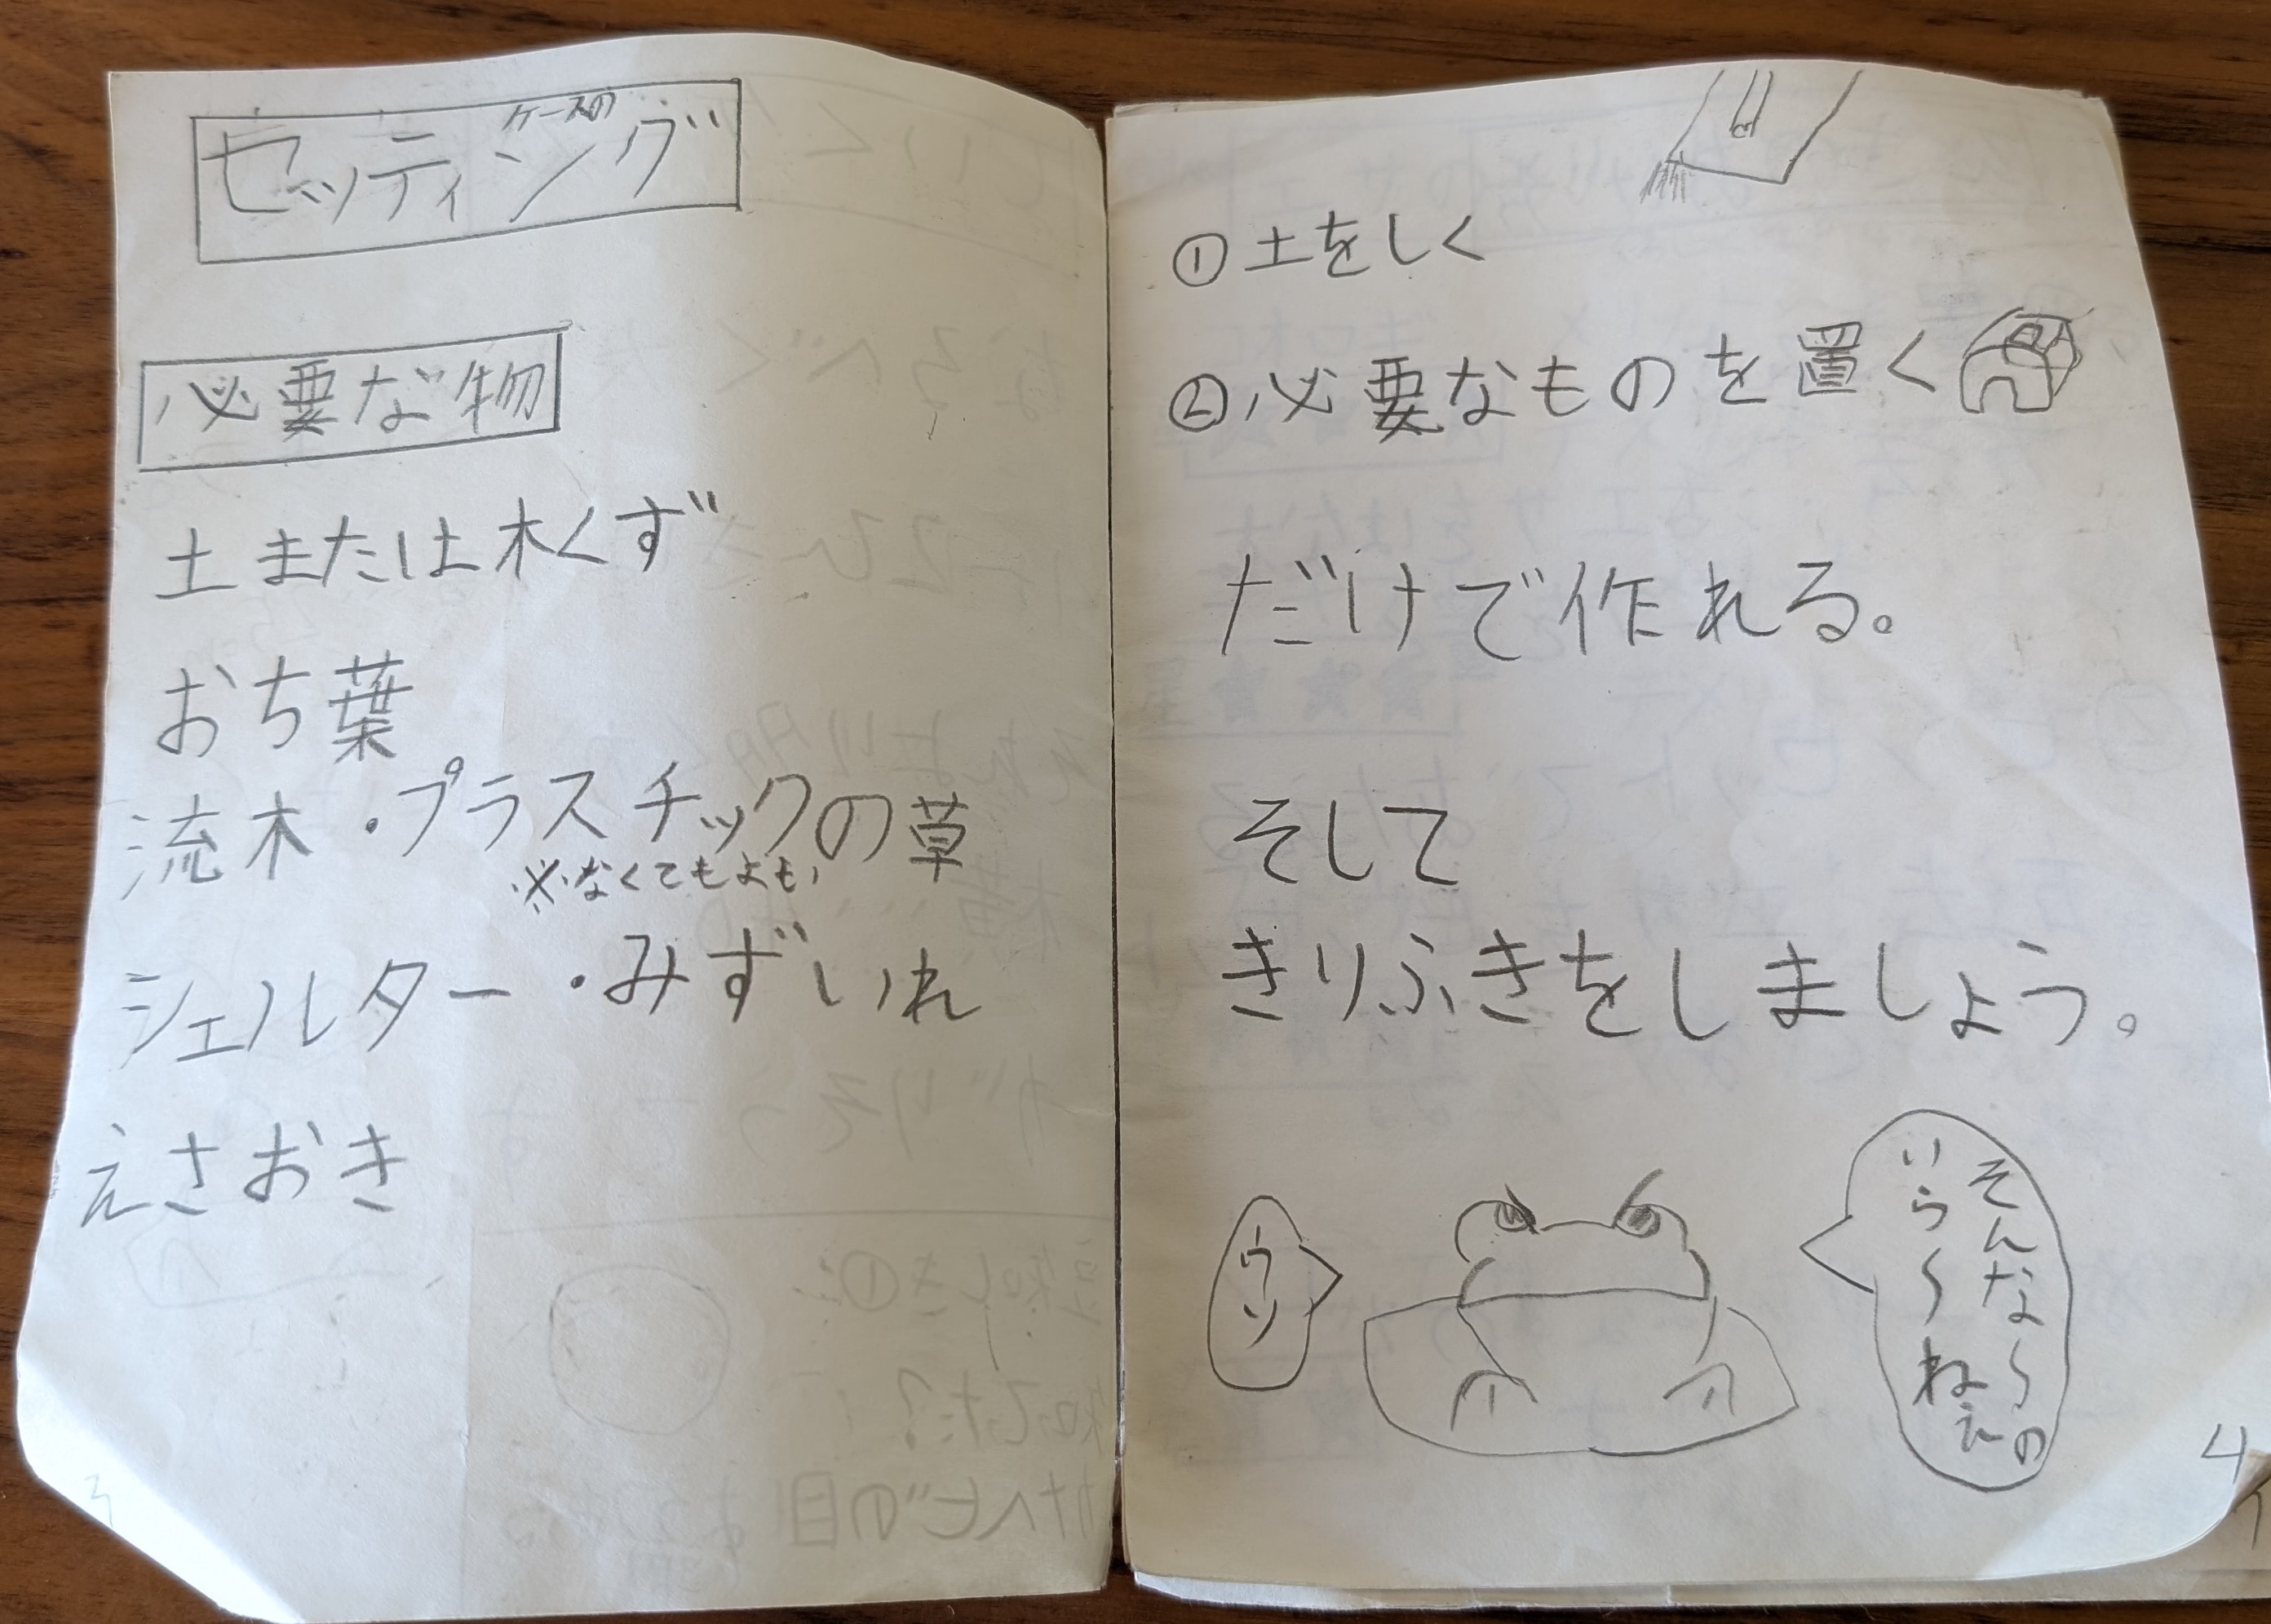 ケースの
セッティング
必要な物
土または木くず
おち葉
流木・プラスチックの草
※なくてもよも
シェルター・みずいれ
えさおき
3
①土をしく
②必要なものを置く
だけで作れる。
そして
きりふきをしましょう。
そんな～の
いら～ねぇ
ウソ
4